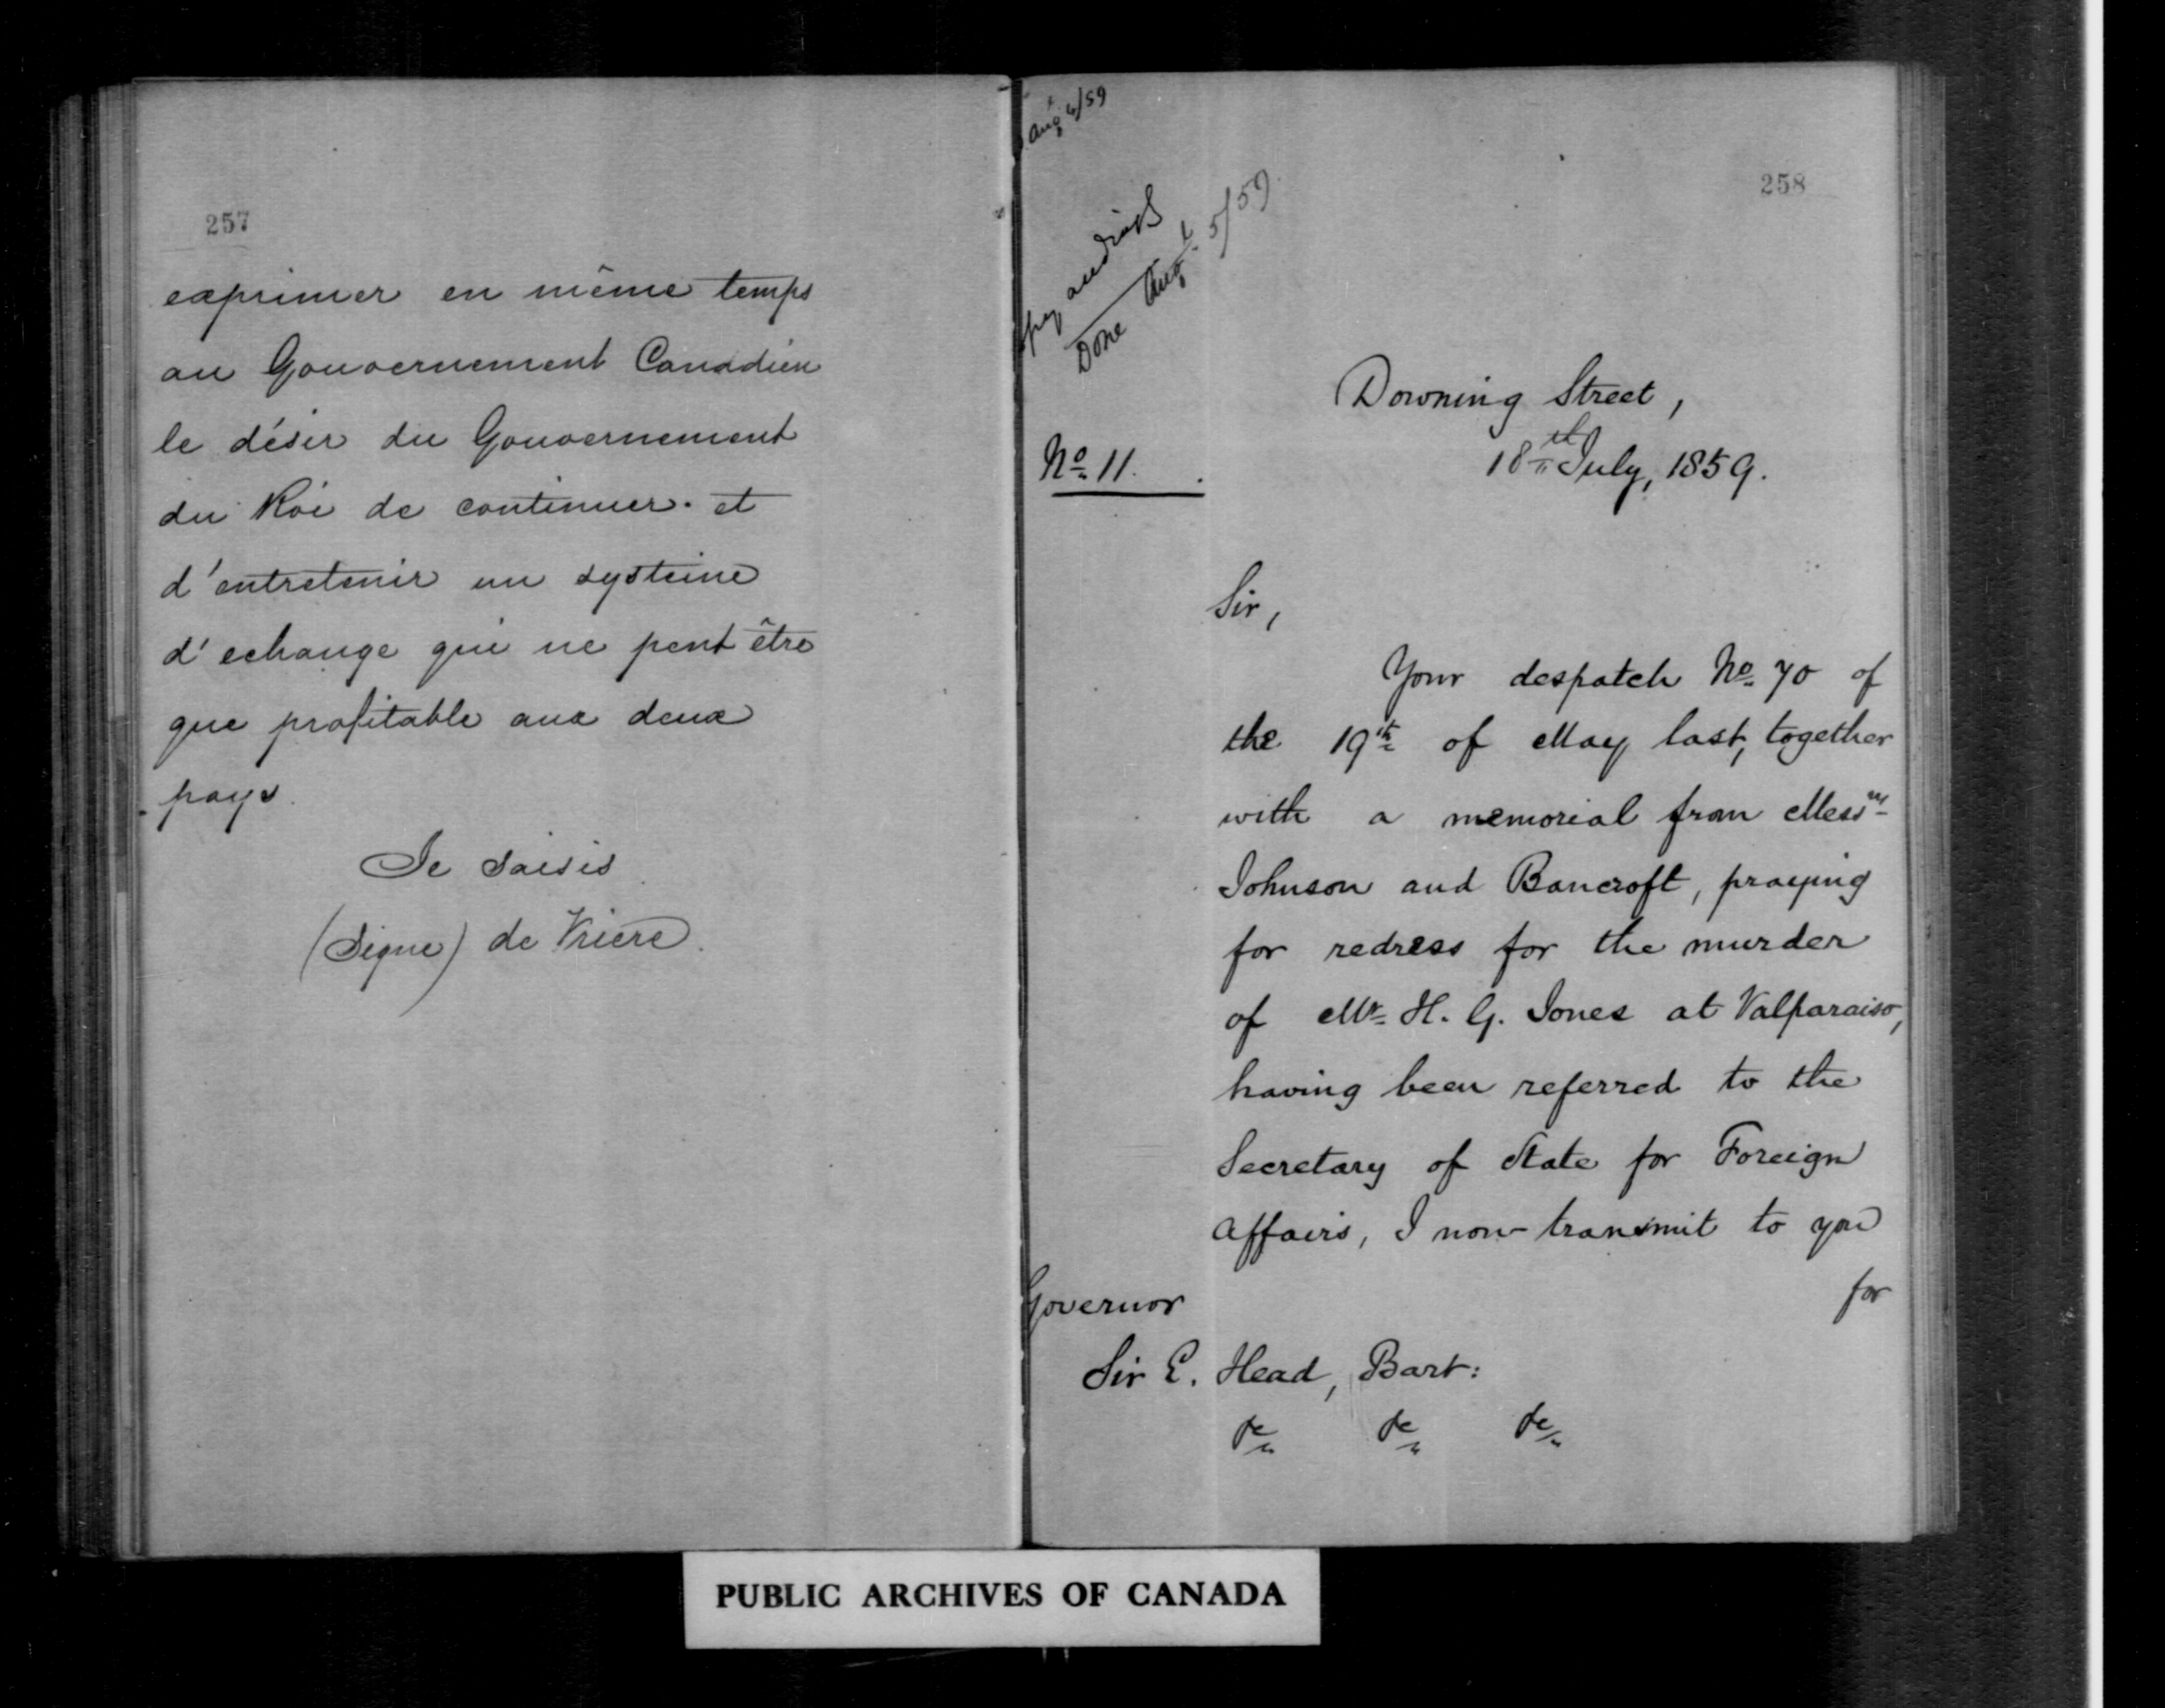 257
exprimer en même temps
au Gouvernement Canadien
le désir du Gouvernement
du Roi de continuer et
d'entretenir un systeme
d'echange qui ne peut être
que profitable aux deux
pays
Je saisis
(Signe) de Vriere.
Augt 4/59
258
Done Augt 5/59
Downing Street,
No 11.
18th July, 1859.
Sir,
Your despatch No 70 of
the 19th of May last, together
with a memorial from Messrs
Johnson and Bancroft, praying
for redress for the murder
of Mr H. G. Jones at Valparaiso,
having been referred to the
Secretary of State for Foreign
Affairs, I now transmit to you
for
Governor
Sir E. Head, Bart:
&c &c &c
PUBLIC ARCHIVES OF CANADA